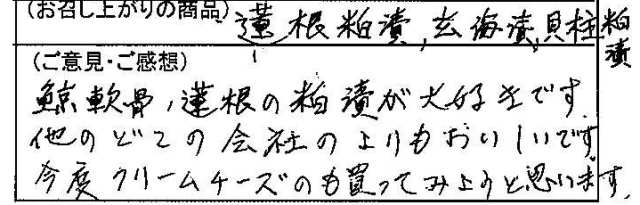 (お召し上がりの商品) 蓮根粕漬,玄海漬,貝柱粕漬
(ご意見・ご感想)
鯨軟骨,蓮根の粕漬が大好きです.
他のどこの会社のよりもおいしいです.
今度クリームチーズのも買ってみようと思います.